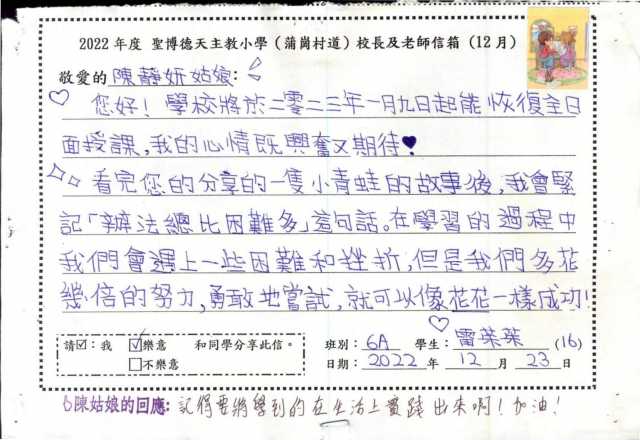 2022 年度 聖博德天主教小學（蒲崗村道）校長及老師信箱（12 月）
敬愛的陳靜妍姑娘：
您好！學校將於二零二三年一月九日起能恢復全日
面授課，我的心情既興奮又期待♥
看完您的分享的一隻小青蛙的故事後，我會緊
記「辦法總比困難多」這句話。在學習的過程中
我們會遇上一些困難和挫折，但是我們多花
幾倍的努力，勇敢地嘗試，就可以像花花一樣成功！
請☑：我 ☑樂意 和同學分享此信。
□不樂意
班別：6A 學生：雷 (16)
日期：2022 年 12 月 23 日
陳姑娘的回應：記得要將學到的在生活上實踐出來啊！加油！